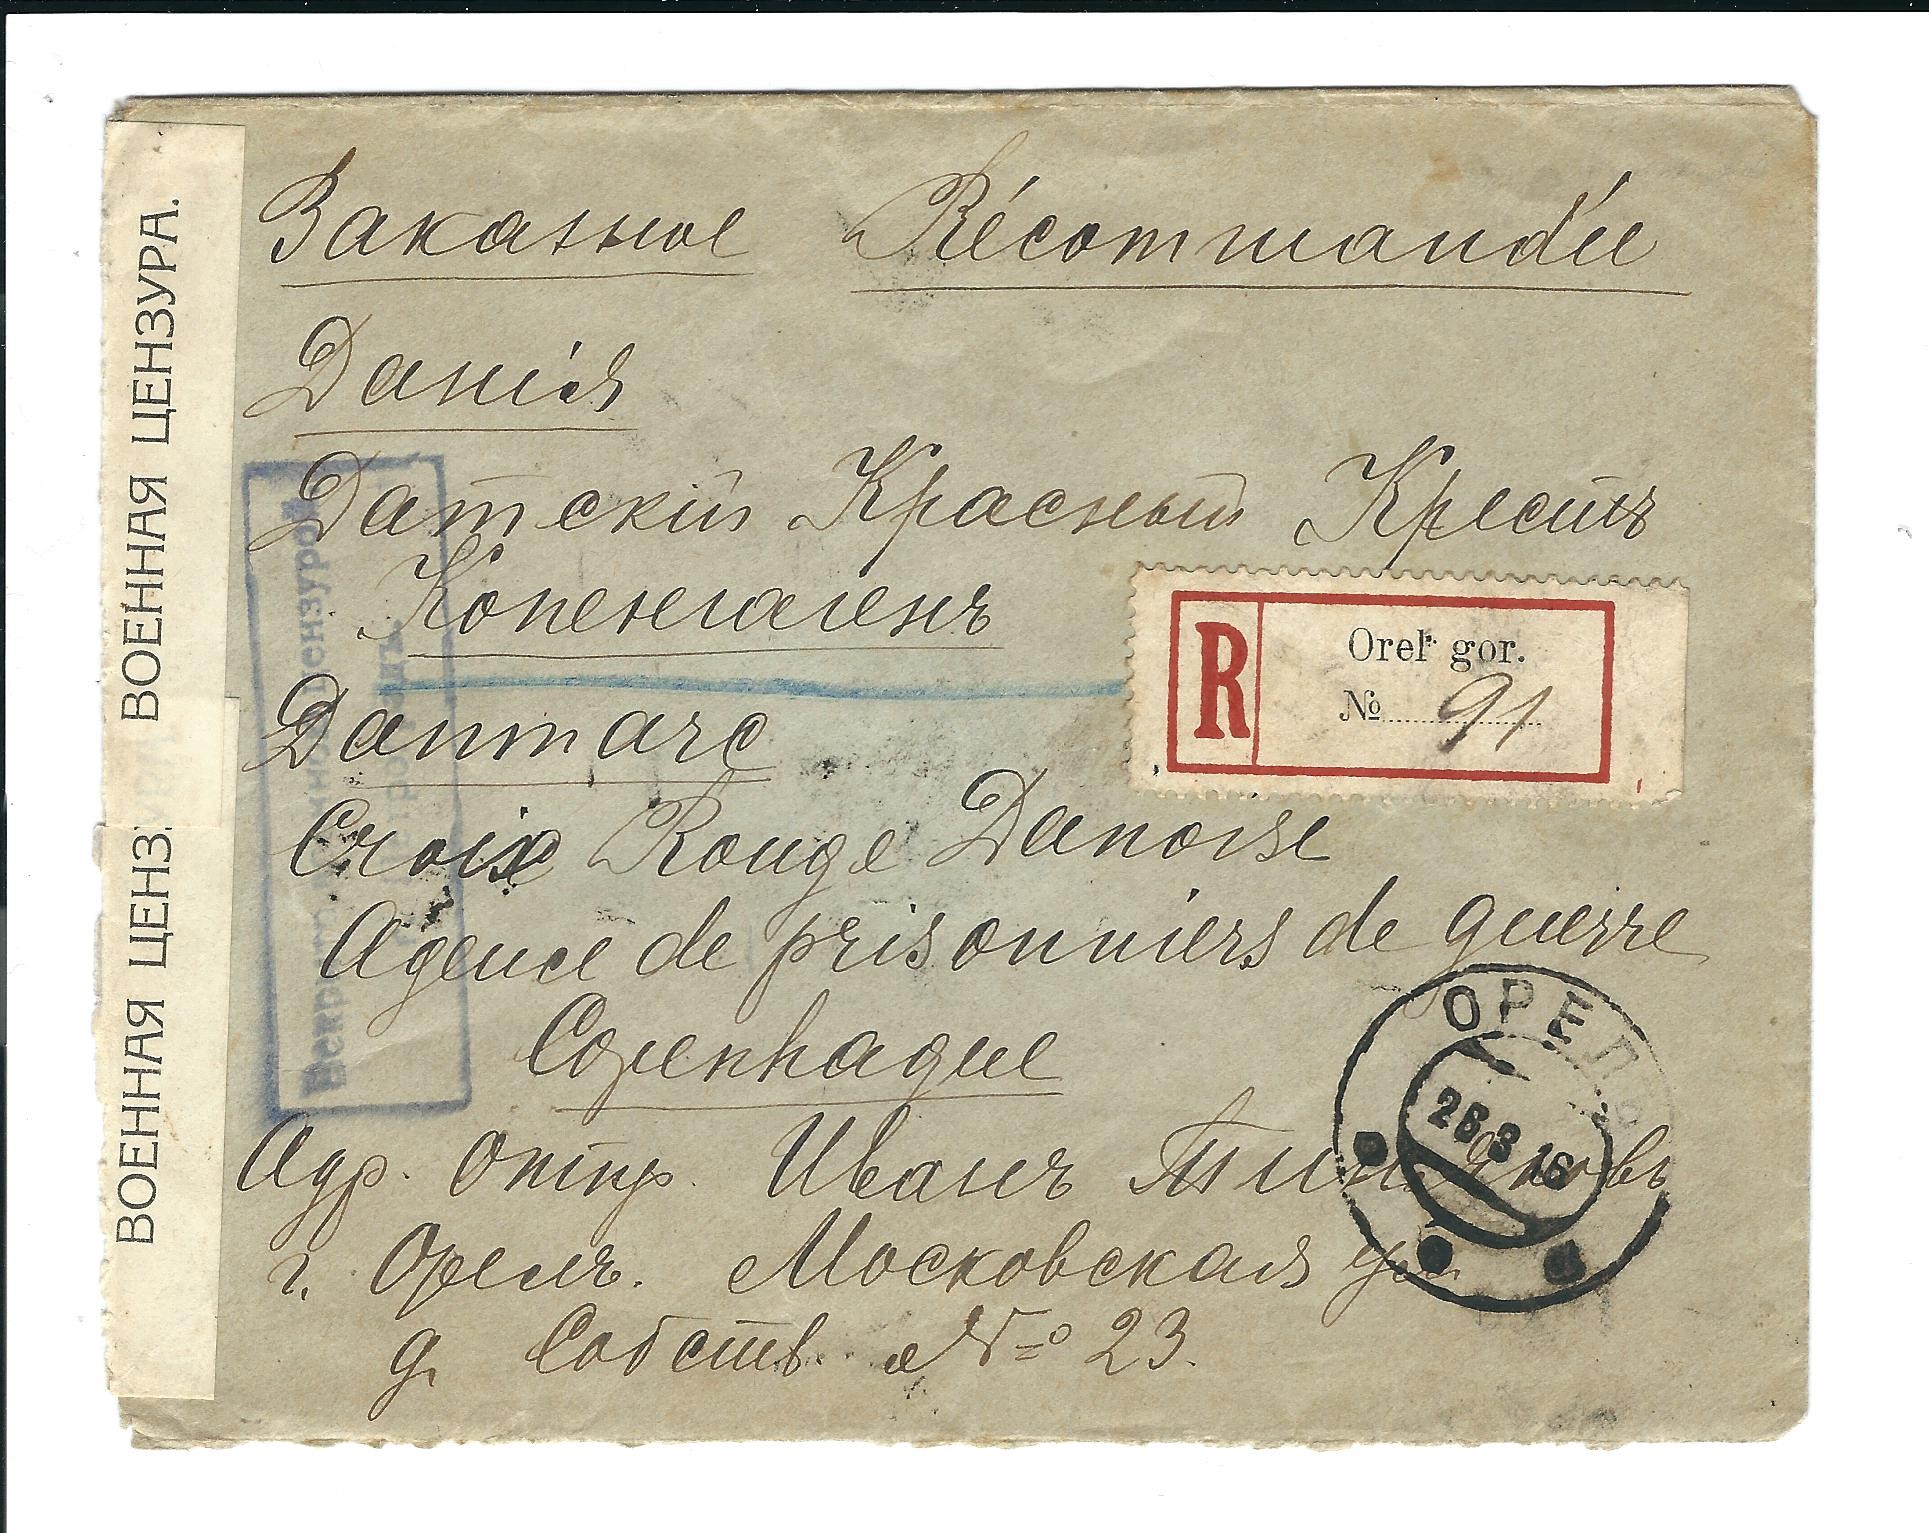 ВОЕННАЯ ЦЕНЗУРА.
ВОЕННАЯ ЦЕНЗ
Заказное Récommandée
Данія
Датскій Красный Крестъ
Копенгагенъ
R
Orel gor.
№ 91
Danmarc
Croix Rouge Danoise
Agence de prisonniers de guerre
Copenhague
ОРЕЛ
26 3 16
Адр. отпр. Иванъ
г. Орелъ. Московская ул.
д. Собств. № 23.
Вскрыто военной цензурой